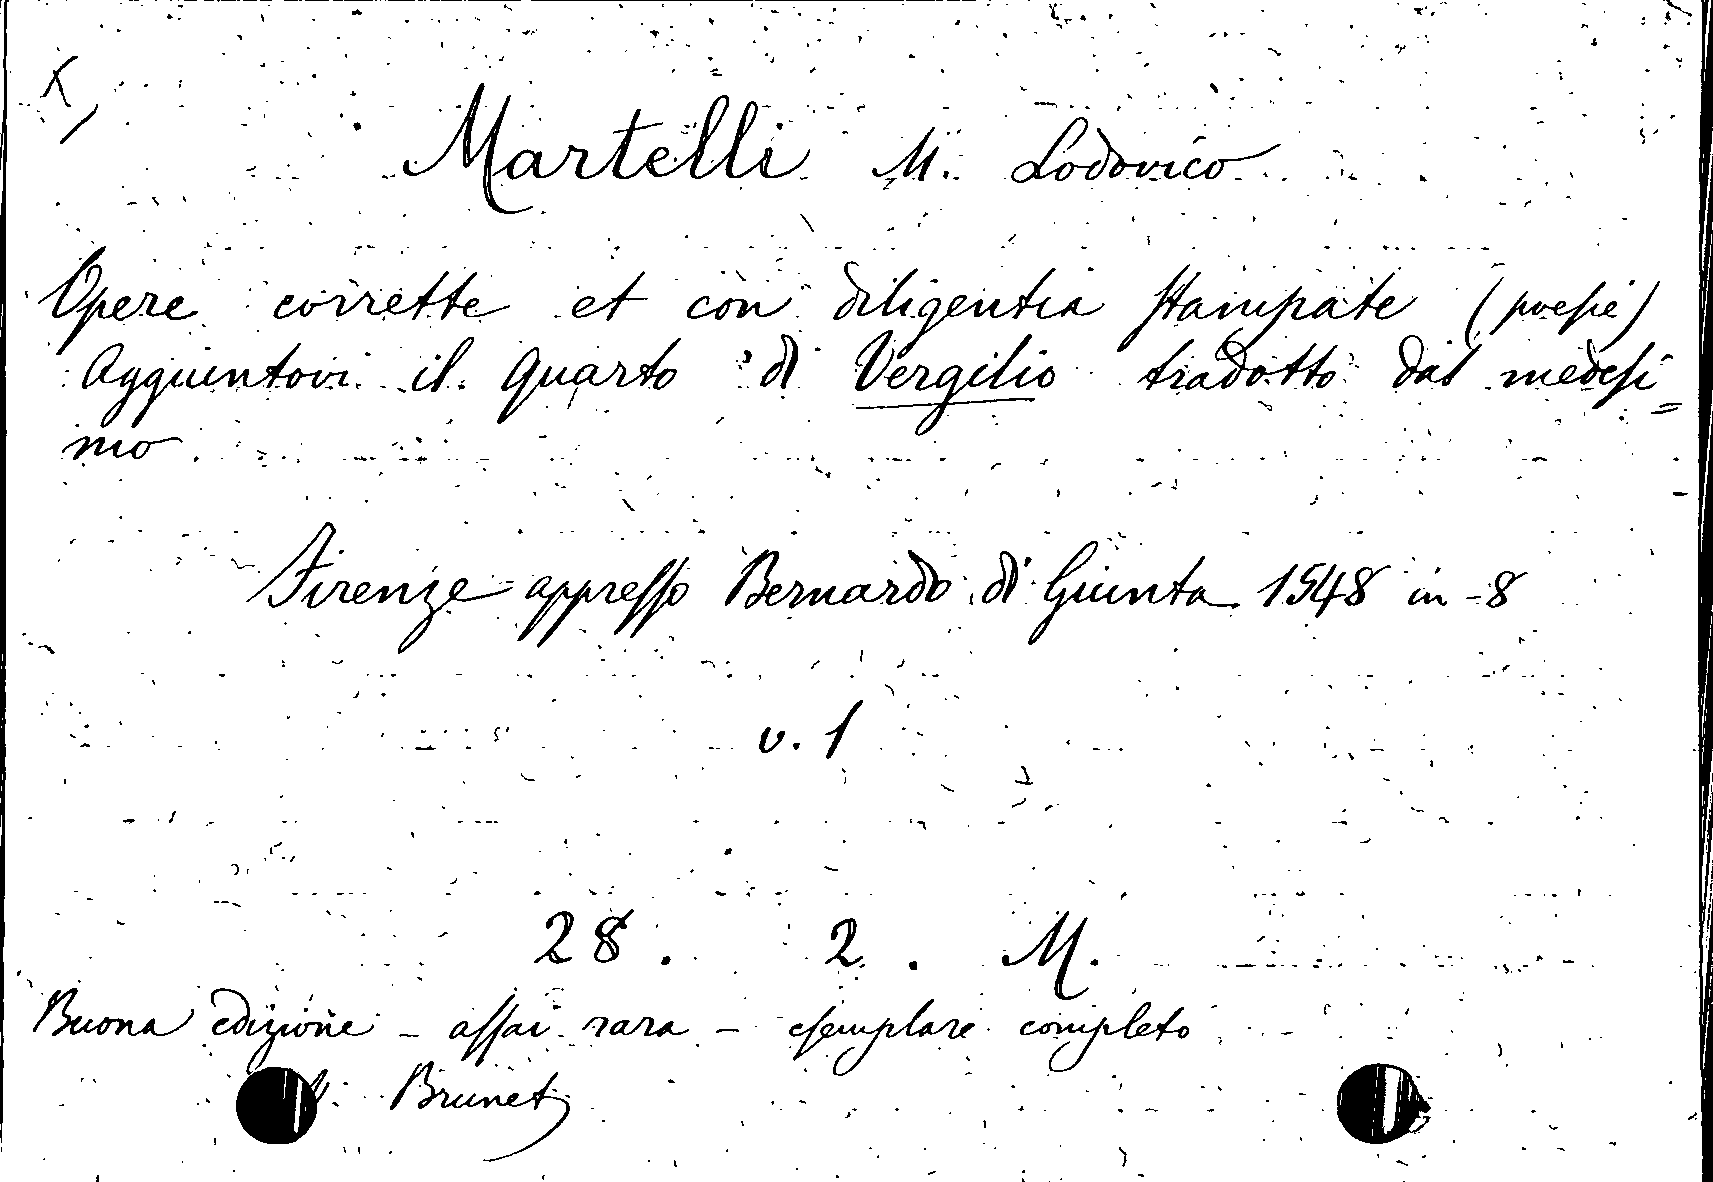 Martelli M. Lodovico
Opere corrette et con diligentia stampate (poesie)
Aggiuntovi il quarto di Vergilio tradotto dal medesi=
mo
Firenze appresso Bernardo di Giunta 1548 in-8
v. 1
28. 2. M.
Buona edizione - assai rara - esemplare completo
Brunet